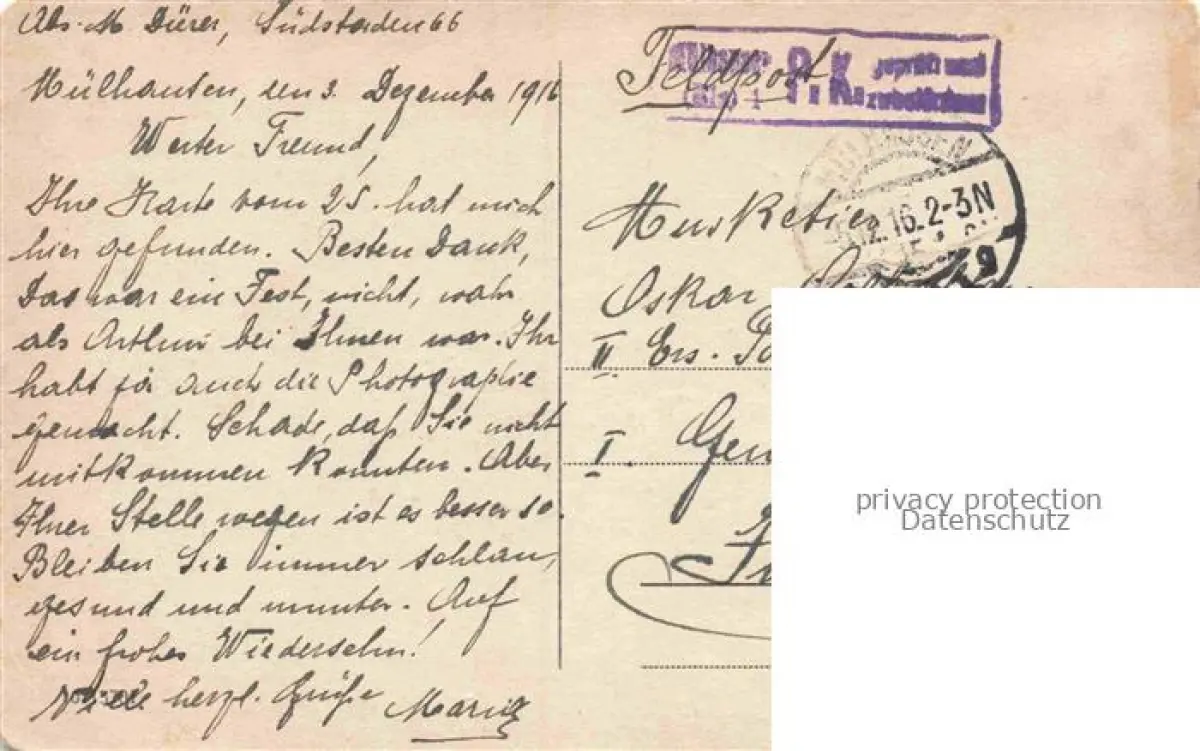 Abs. M. Dürer, Südstaden 66
Mülhausen, den 3. Dezember 1916
Werter Freund,
Ihre Karte vom 25. hat mich
hier gefunden. Besten Dank,
Das war ein Fest, nicht, wahr
als Arthur bei Ihnen war. Ihr
habt ja auch die Photographie
gemacht. Schade, daß Sie nicht
mitkommen konnten. Aber
Ihrer Stelle wegen ist es besser so.
Bleiben Sie immer schlau,
gesund und munter. Auf
ein frohes Wiedersehn!
Viele herzl. Grüße
Feldpost
P.K. geprüft und
zuzulassen
MÜLHAUSEN
12.16.2-3N
Musketier
Oskar
II. Ers.
I.
privacy protection
Datenschutz